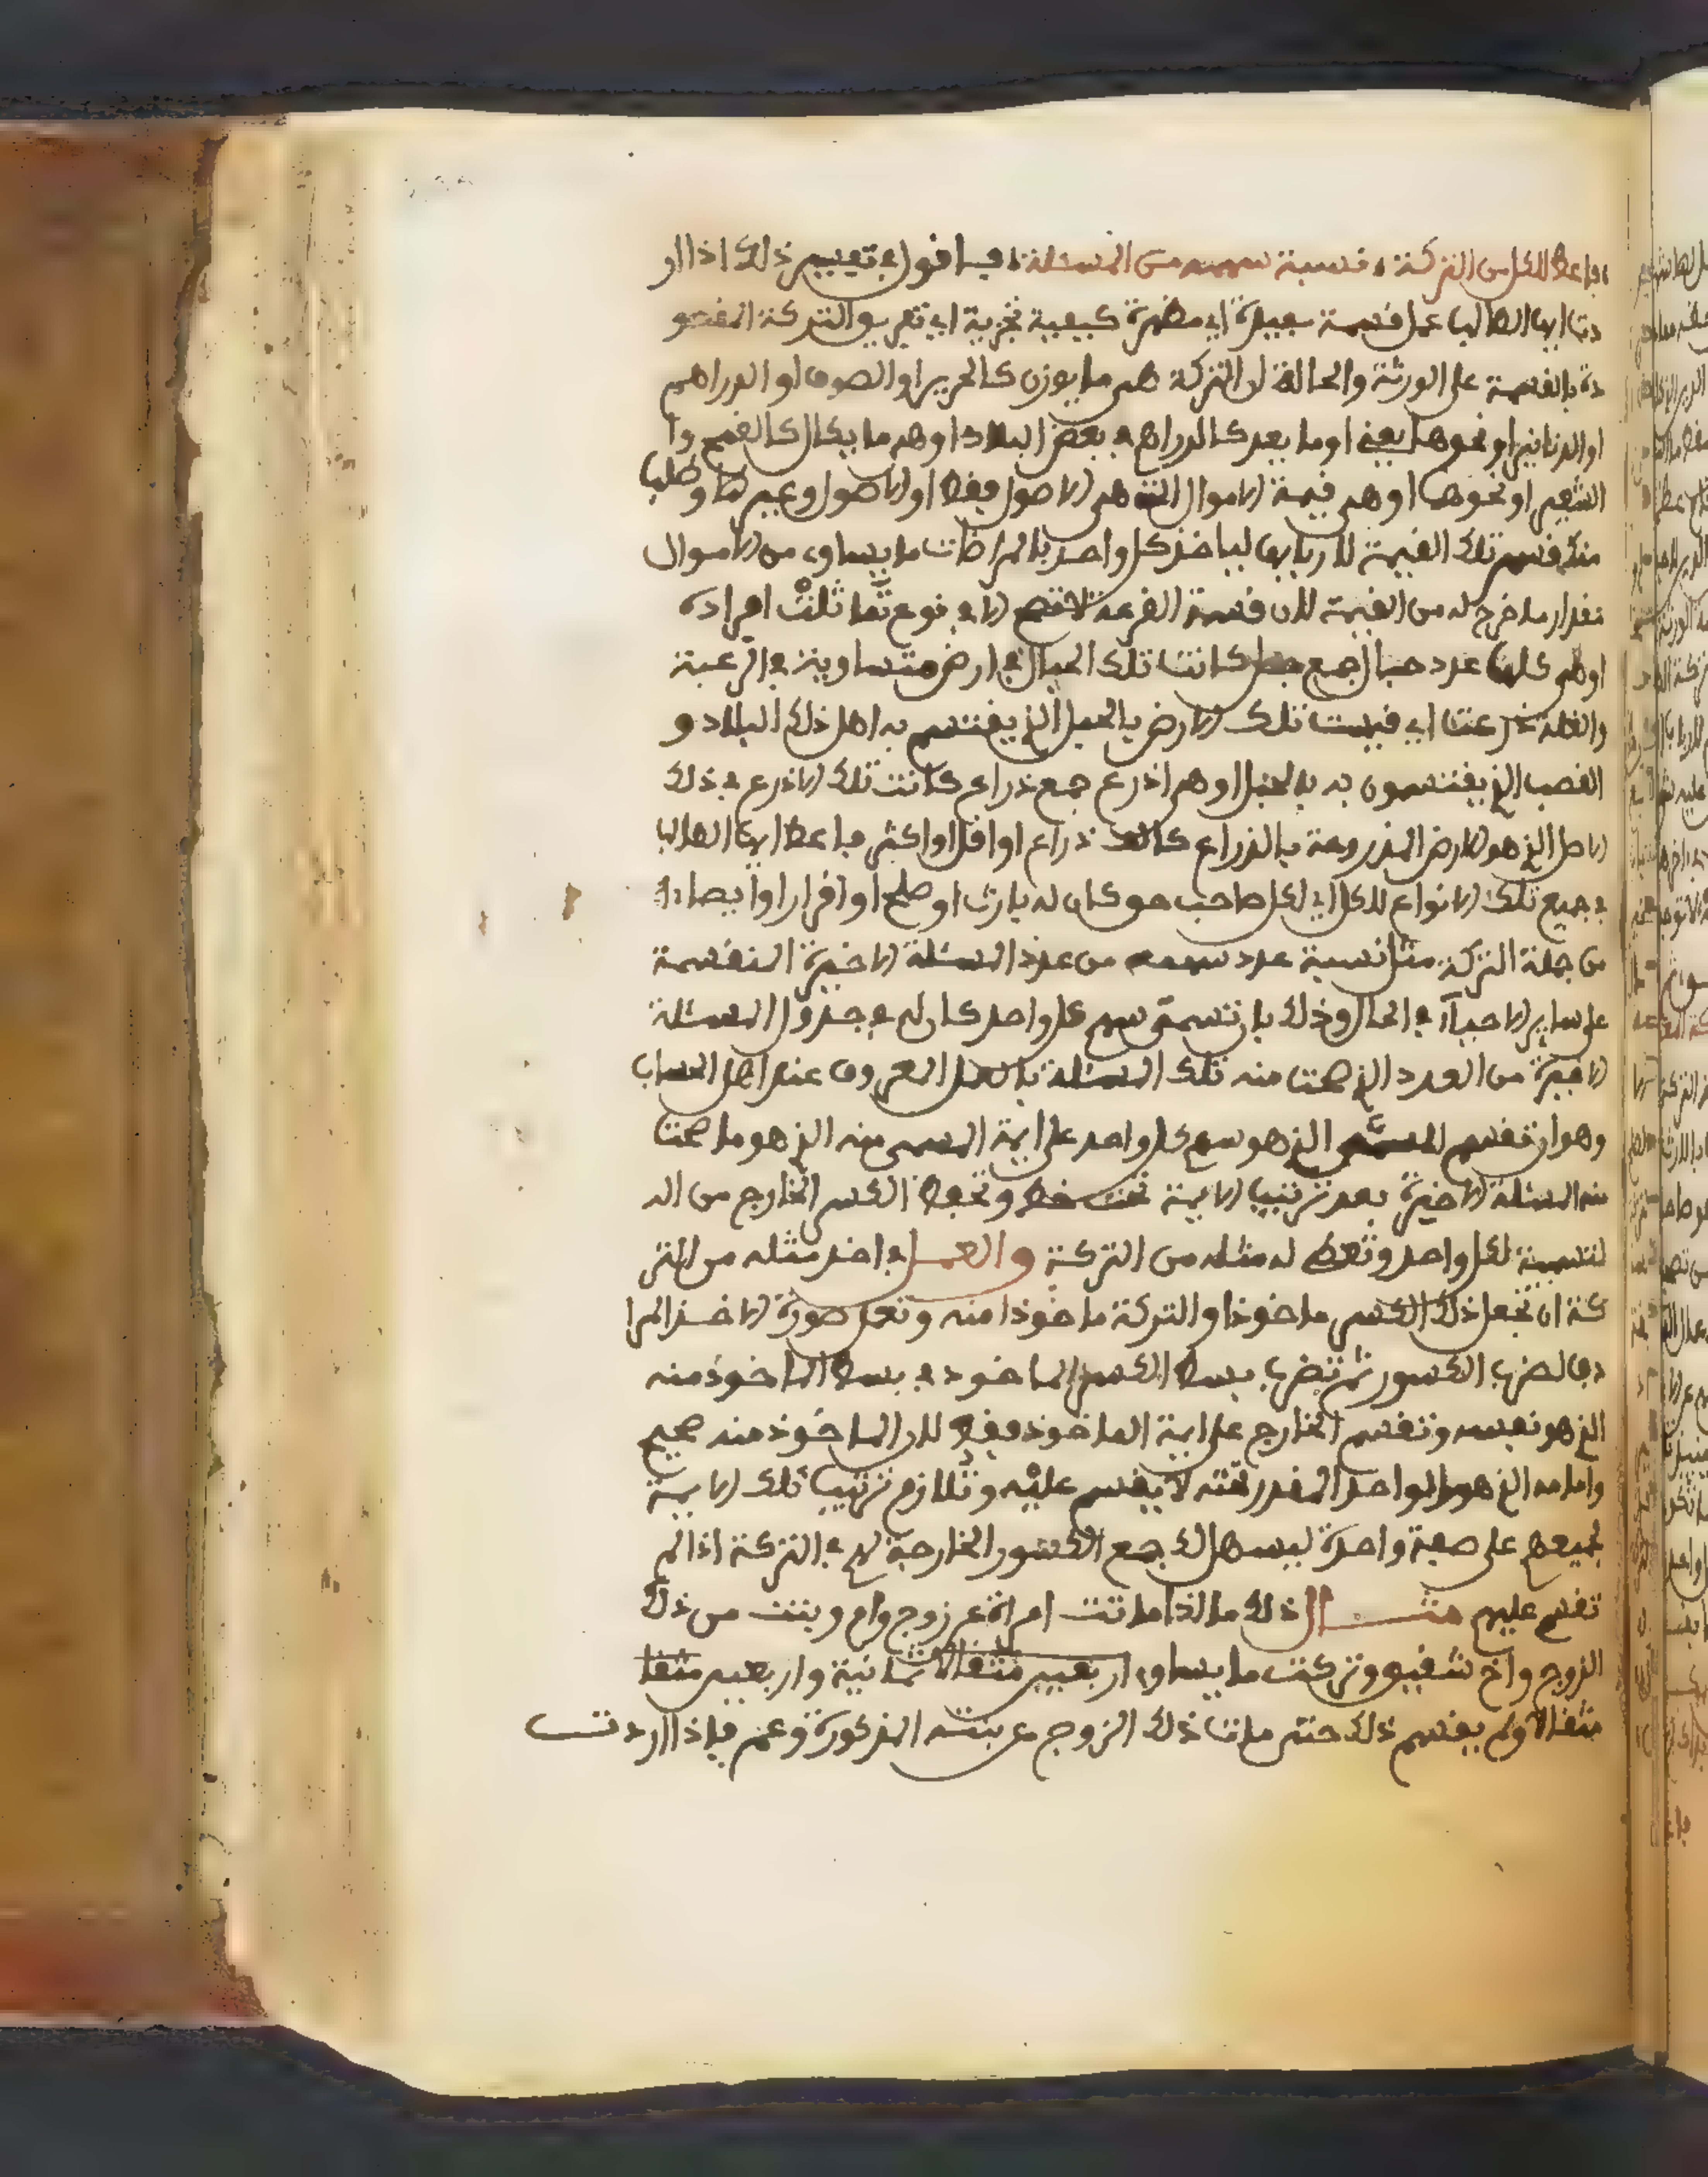 فاعط للكل من التركة نسبة سهمه من المسئلة فيا قول في تعيير ذلك اذا ار
دت ايها الطالب عمل قسمة سعيدة اي مطهرة كيفية تجزية اي تعريو التركة المقصو
دة بالقسمة على الورثة والحالة ان التركة هي ما يوزن كالحرير او الصوف او الدراهم
او الدنانير او نحوها يعني او ما يعد كالدراهم في بعض البلاد او هو ما يكال كالقمح وا
الشعير او نحوها او هي قيمة الاموال التي هي الاصول فقط او الاصول وغيرها وطلب
منك قسم تلك القيمة لاربابها لياخذ كل واحد بالمراضات ما يساوي من الاموال
مقدار ما خرج له من القيمة لان قسمة القرعة لا تصح الا في نوع تماثلت افراده
او هي كلها عدد حبال جمع حبل كانت تلك الحبال في ارض متساوية في الرغبة
والغلة ذرعت اي قيست تلك الارض بالحبل الذي يقتسم به اهل ذلك البلاد و
القصب الذي يقتسمون به بالحبل او هي اذرع جمع ذراع كانت تلك الاذرع في ذلك
الاصل الذي هو الارض المذروعة بالذراع كالف ذراع او اقل او اكثر فاعط ايها الطالب
في جميع تلك الانواع للكل اي لكل صاحب حق كان له بارث او صلح او اقرار او ايصاء
من جملة التركة مثل نسبة عدد سهمه من عدد المسئلة الاخيرة المنقسمة
على ساير الاحياء في الحال وذلك بان تسمي سهم كل واحد كان له في جدول المسئلة
الاخيرة من العدد الذي صحت منه تلك المسئلة بالعمل المعروف عند اهل الحساب
وهو ان تقسم المسمى الذي هو سهم كل واحد على ايمة المسمى منه الذي هو ما صحت
منه المسئلة الاخيرة بعد ترتيب الايمة تحت خط وتحفظ الكسر الخارج من ال
لتسمية لكل واحد وتعطي له مثله من التركة والعمل في اخذ مثله من التر
كة ان تجعل ذلك الكسر ماخوذا والتركة ماخوذا منه وتعمل صورة الاخذ المرا
دف لضرب الكسور ثم تضرب بسط الكسر الماخوذ في بسط الماخوذ منه
الذي هو نفسه وتقسم الخارج على ايمة الماخوذ فقط لان الماخوذ منه صحيح
وامامه الذي هو الواحد المقدر تحته لا يقسم عليه وتلازم ترتيب تلك الايمة
لجميعهم على صفة واحدة ليسهل لك جمع الكسور الخارجة لهم في التركة اذا لم
تقسم عليهم مثال ذلك ما اذا ماتت امراة عن زوج وام وبنت من ذلك
الزوج واخ شقيق وتركت ما يساوي اربعين مثقالا ثمانية واربعين مثقا
مثقالا ولم يقسم ذلك حتى مات ذلك الزوج عن بنته المذكورة وعم فاذا اردت